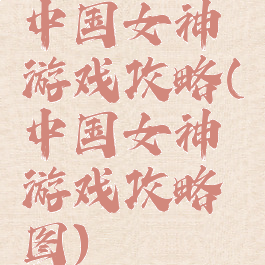 中国女神
游戏攻略(
中国女神
游戏攻略
图)